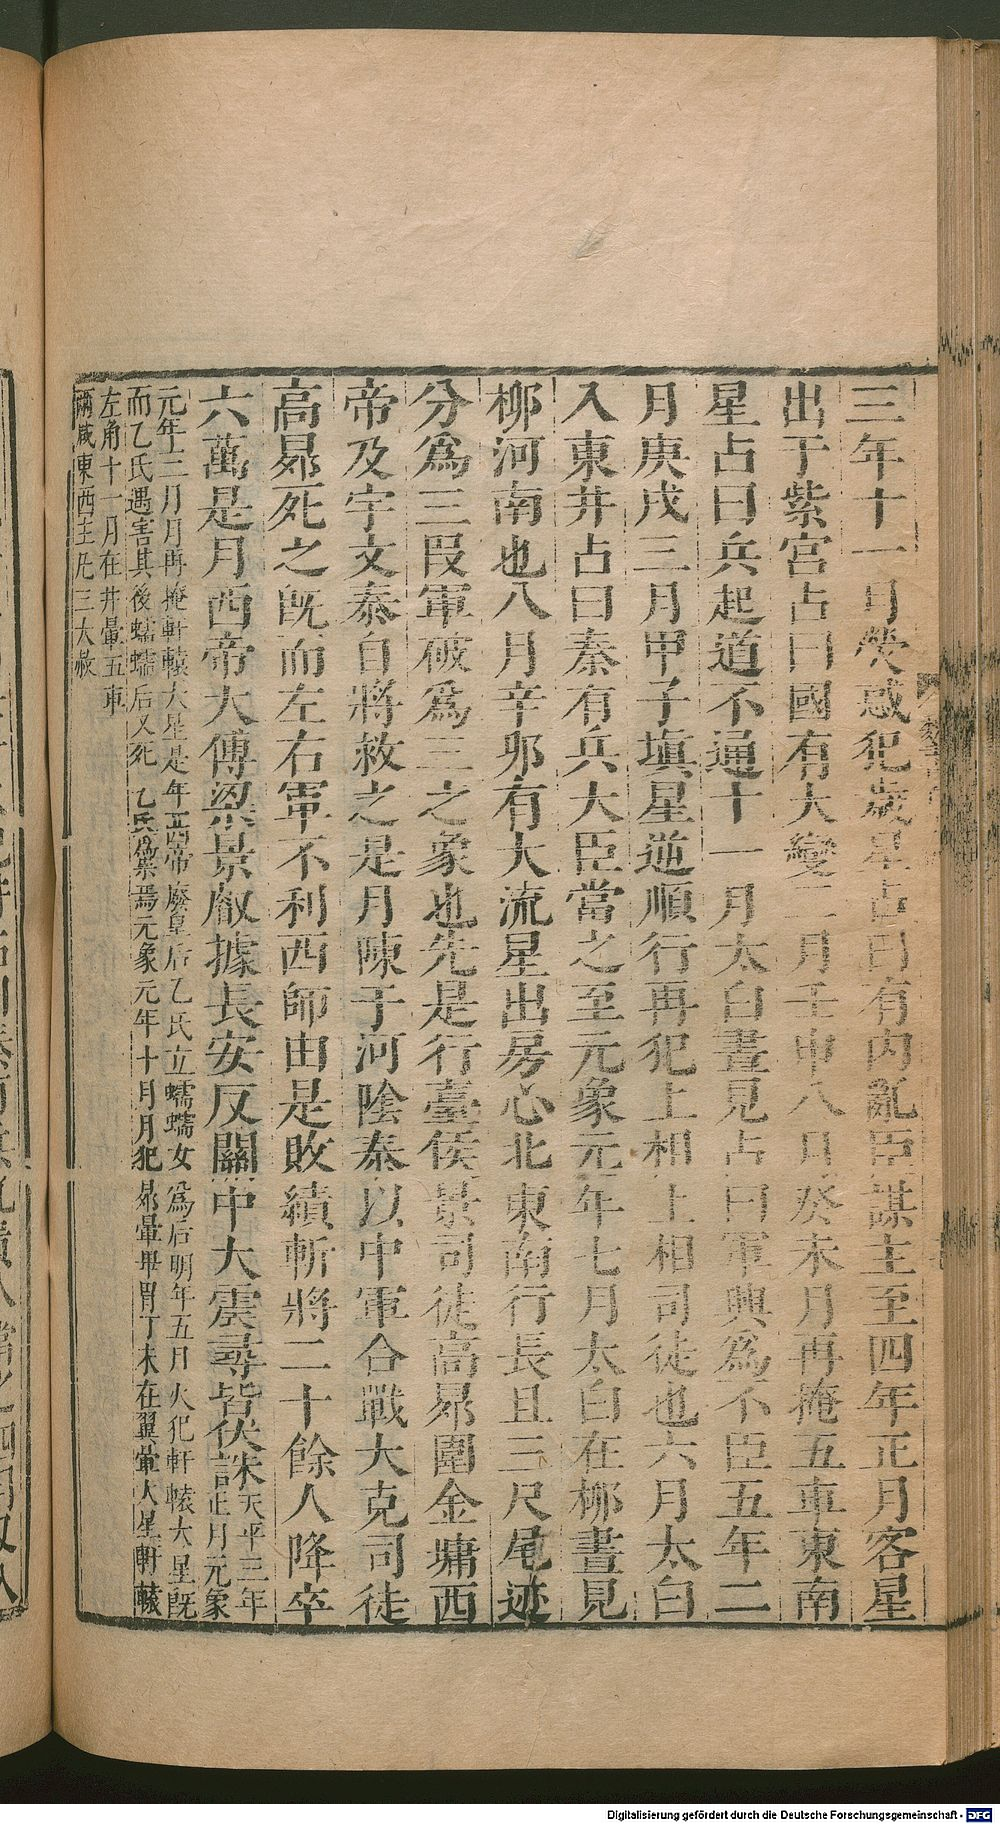 三年十一月熒惑犯歲星占曰有內亂臣謀主至四年正月客星
出于紫宮占曰國有大變二月壬申八月癸未月再掩五車東南
星占曰兵起道不通十一月太白晝見占曰軍興爲不臣五年二
月庚戌三月甲子塡星逆順行再犯上相上相司徒也六月太白
入東井占曰秦有兵大臣當之至元象元年七月太白在柳晝見
柳河南也八月辛卯有大流星出房心北東南行長且三尺尾迹
分爲三叚軍破爲三之象也先是行臺侯景司徒高昻圍金墉西
帝及宇文泰自將救之是月陳于河陰泰以中軍合戰大克司徒
高昻死之旣而左右軍不利西師由是敗績斬將二十餘人降卒
六萬是月西帝大傅梁景叡據長安反關中大震尋皆伏誅天平三年
正月元象
元年二月月再掩軒轅大星是年西帝廢皇后乙氏立蠕蠕女爲后明年五月火犯軒轅大星旣
而乙氏遇害其後蠕蠕后又死乙氏爲祟焉元象元年十月月犯昴暈畢胃丁未在翼暈大星軒轅
左角十一月在井暈五車
兩咸東西主凡三大赦
Digitalisierung gefördert durch die Deutsche Forschungsgemeinschaft - DFG